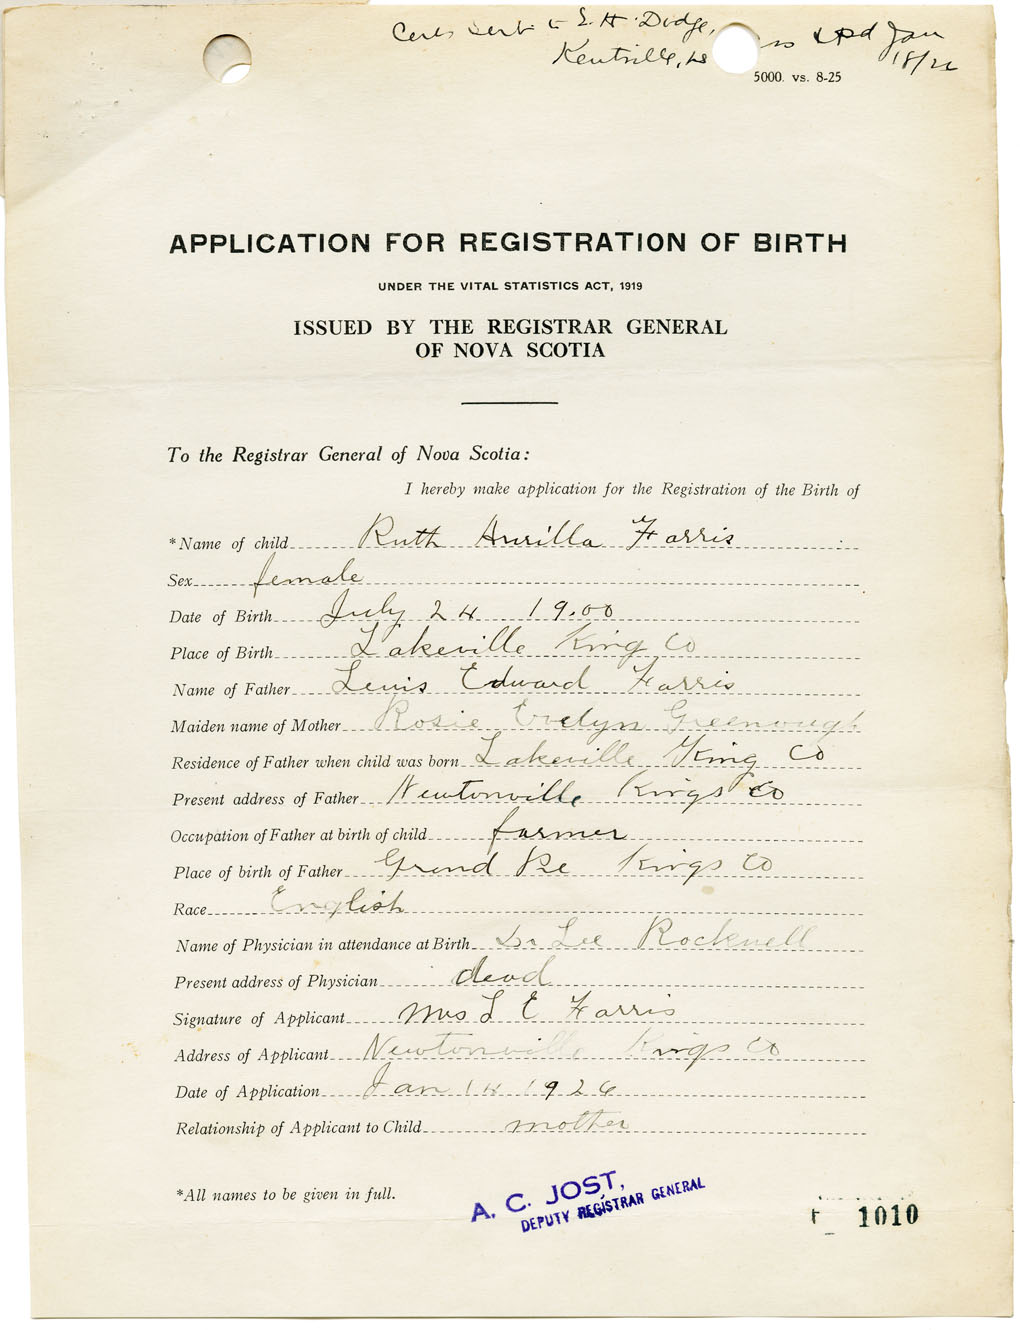 Cert sent to E. H. Dodge,
Kentville, NS
Jan
18/26
5000. vs. 8-25
APPLICATION FOR REGISTRATION OF BIRTH
UNDER THE VITAL STATISTICS ACT, 1919
ISSUED BY THE REGISTRAR GENERAL
OF NOVA SCOTIA
To the Registrar General of Nova Scotia:
I hereby make application for the Registration of the Birth of
*Name of child Ruth Aurilla Farris
Sex female
Date of Birth July 24 1900
Place of Birth Lakeville King Co
Name of Father Lewis Edward Farris
Maiden name of Mother Rosie Evelyn Greenough
Residence of Father when child was born Lakeville King Co
Present address of Father Newtonville Kings Co
Occupation of Father at birth of child farmer
Place of birth of Father Grand Pre Kings Co
Race English
Name of Physician in attendance at Birth Dr Lee Rockwell
Present address of Physician dead
Signature of Applicant Mrs L E Farris
Address of Applicant Newtonville Kings Co
Date of Application Jan 14 1926
Relationship of Applicant to Child mother
*All names to be given in full.
A. C. JOST,
DEPUTY REGISTRAR GENERAL
1010